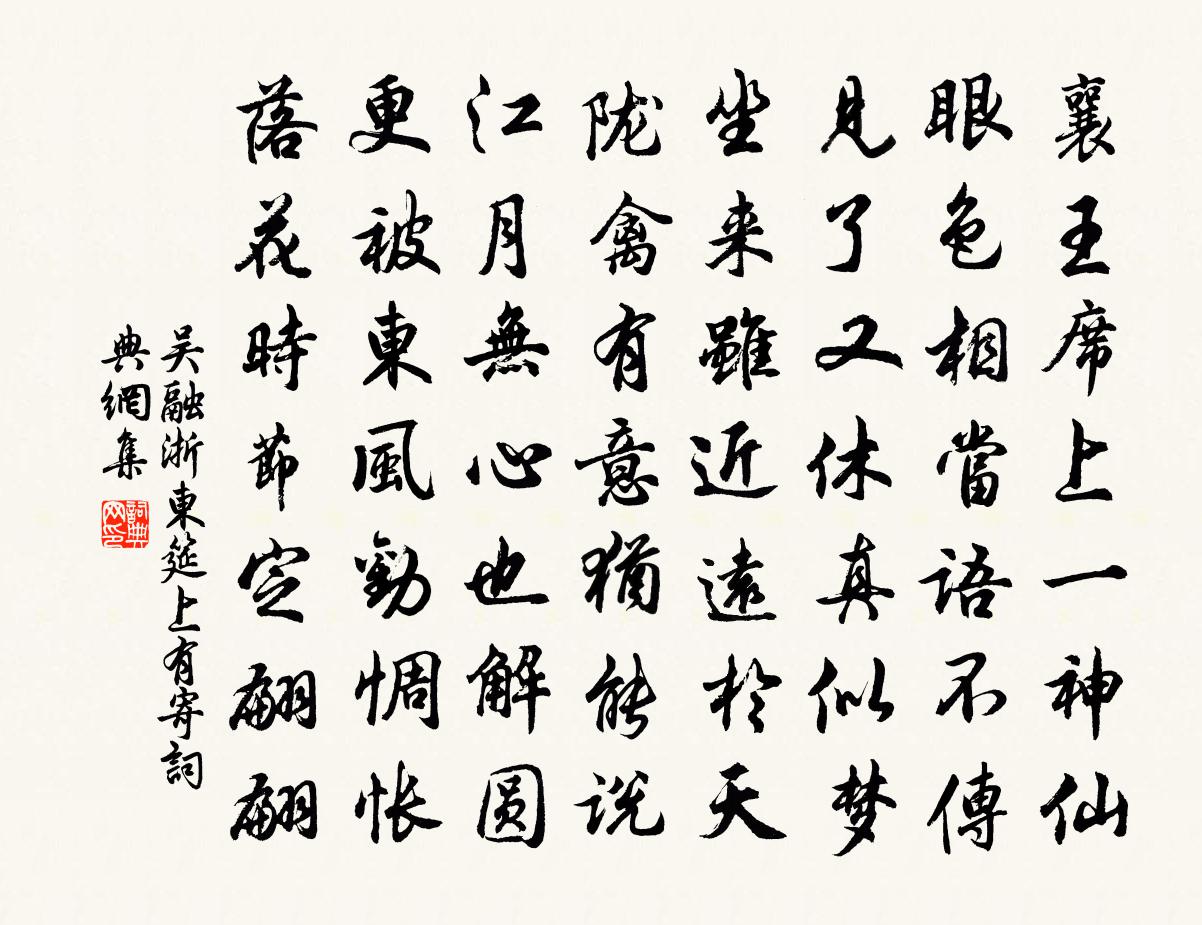 襄王席上一神仙
眼色相當語不傳
見了又休真似梦
坐来雖近遠於天
陇禽有意猶能说
江月無心也解圆
更被東風勸惆怅
落花時節定翩翩
吴融浙東筵上有寄詞
典網集
詞典网印